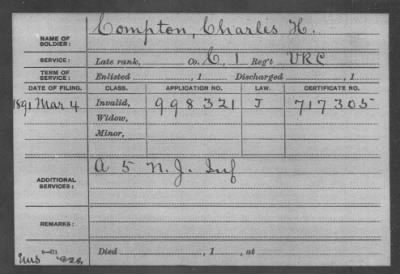 NAME OF SOLDIER: Compton, Charles H.
SERVICE: Late rank, Co. C, 1 Reg't VRC
TERM OF SERVICE: Enlisted , 1 Discharged , 1
DATE OF FILING. CLASS. APPLICATION NO. LAW. CERTIFICATE NO.
1891 Mar 4 Invalid, 998321 J 717305
Widow,
Minor,
ADDITIONAL SERVICES: A 5 N.J. Inf
REMARKS:
Died , 1 , at